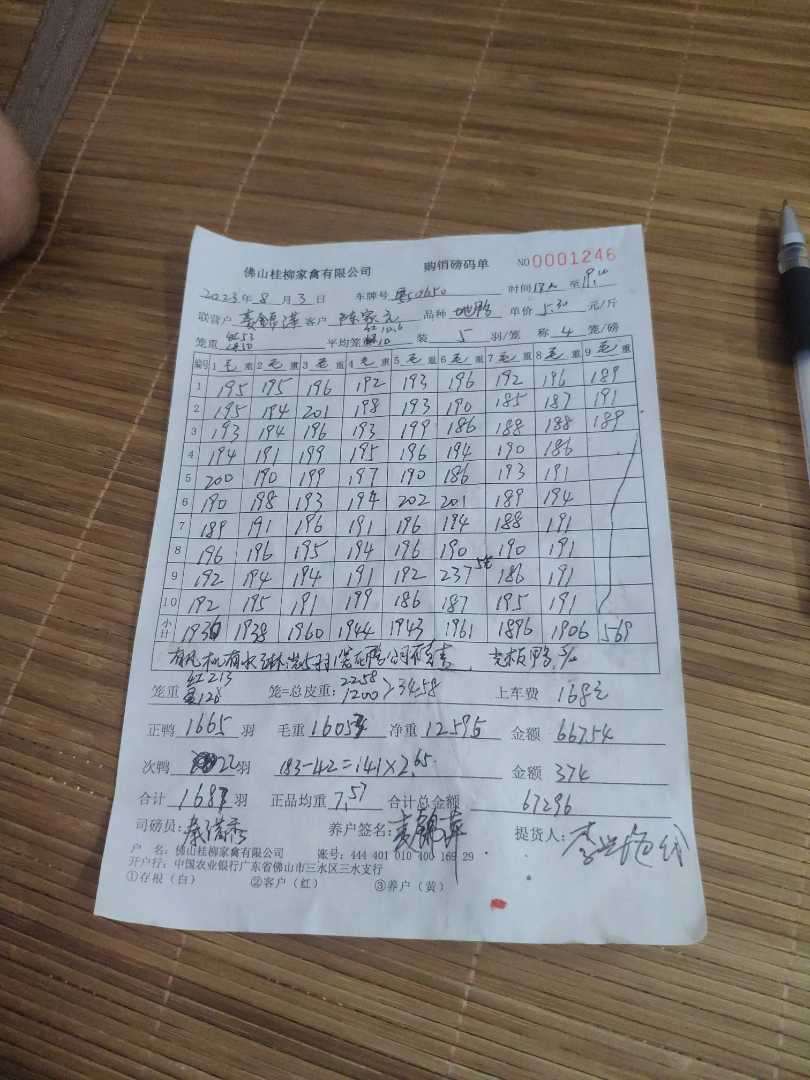 佛山桂柳家禽有限公司 购销磅码单 NO 0001246
2023年 8 月 3 日 车牌号 时间 至
联营户 客户 陈家元 品种 地鸭 单价 5.30 元/斤
笼重 红53 平均笼 红10.6 装 5 羽/笼 称 4 笼/磅
编号 1 毛重 2 毛重 3 毛重 4 毛重 5 毛重 6 毛重 7 毛重 8 毛重 9 毛重
1 195 195 196 192 193 196 192 196 189
2 195 194 201 198 193 190 185 187 191
3 193 194 196 193 199 186 188 188 189
4 194 191 199 195 196 194 190 186
5 200 190 199 197 190 186 193 191
6 190 198 193 194 202 201 189 194
7 189 191 196 191 196 194 188 191
8 196 196 195 194 196 190 190 191
9 192 194 194 191 192 237 186 191
10 192 195 191 199 186 187 195 191
小计 1936 1938 1960 1944 1943 1961 1896 1906 569
笼重 红213 128 笼=总皮重: 2258 1200 >3458 上车费 168元
正鸭 1665 羽 毛重 16053 净重 12595 金额 66754
次鸭 22 羽 183-42=141×2.65 金额 374
合计 1687 羽 正品均重 7.57 合计总金额 67296
司磅员: 养户签名: 提货人:
户 名: 佛山桂柳家禽有限公司 账号: 444 401 010 400 169 29
开户行: 中国农业银行广东省佛山市三水区三水支行
①存根（白） ②客户（红） ③养户（黄）